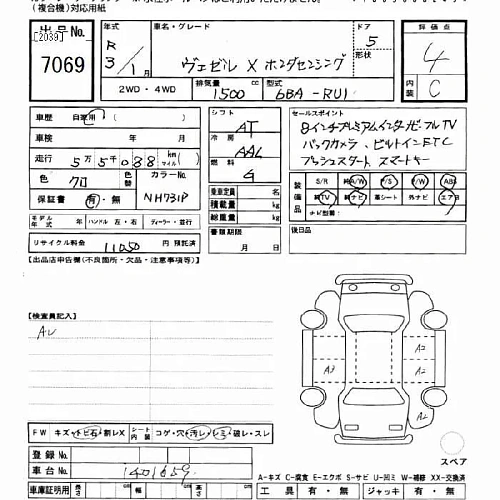 (複合機)対応用紙
出品No.
[2039]
7069
年式
R 3/1月
車名・グレード
ヴェゼル X ホンダセンシング
ドア 5
形状
2WD・4WD
排気量
1500 cc
型式
6BA-RU1
評価点
4
内装
C
車歴 自家用( )
車検 年 月
走行 5万5千088 km マイル
色 クロ
色替
カラーNo. NH731P
保証書 有・無
モデル年式 年 ハンドル 左・右 ディーラー・並行
リサイクル料金 11050 円 預託済
シフト
AT
冷房
AAC
燃料
G
乗車定員 名
積載量 kg
総重量 kg
書類期限
月 日
セールスポイント
8インチプレミアムインターナビ フルTV
バックカメラ、ビルトインETC
プッシュスタート スマートキー
装備品
S/R 純A/W P/S P/W ABS
純TV 純ナビ 革シート 外ナビ エアB
ナビ型番
後日品
【出品店申告欄(不良箇所・欠品・注意事項等)】
【検査員記入】
AU
A2
A3
A2
A2
スペア
FW キズ・トビ石・割レX シート内装 コゲ・穴・汚レ・シミ・破レ・スレ
登録No.
車台No. 1401659
車庫証明用 長 cm 幅 cm 高 cm
A-キズ C-腐食 E-エクボ S-サビ U-凹ミ W-補修 XX-交換済
工具 有・無 ジャッキ 有・無